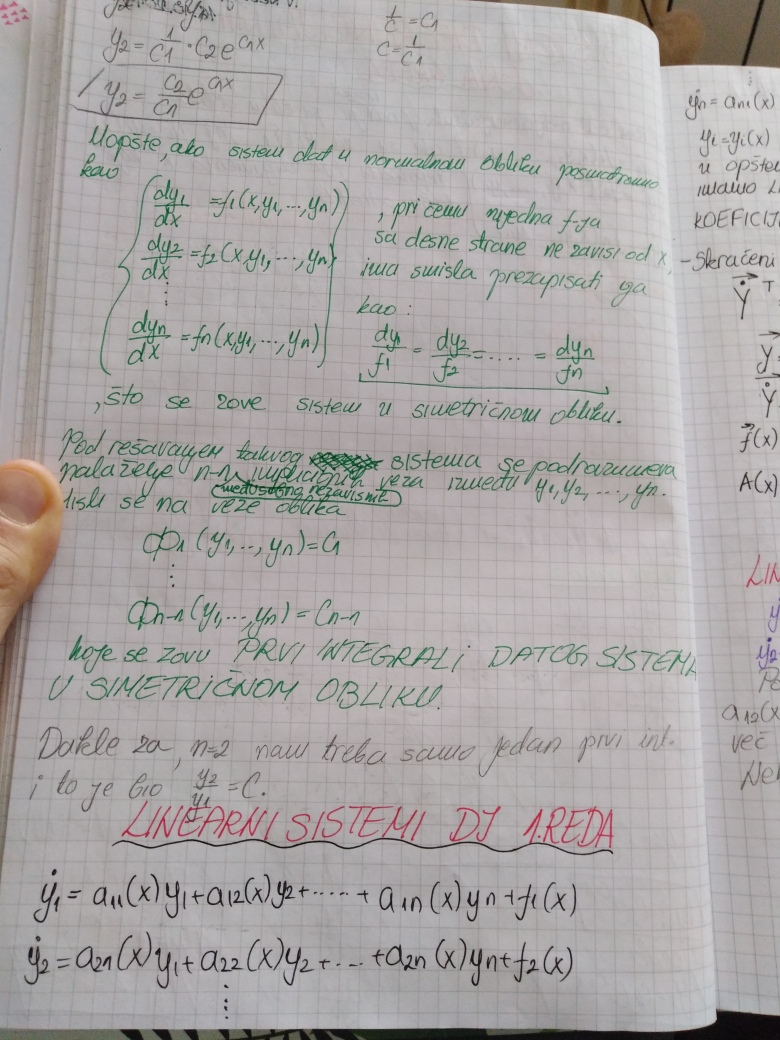 y2 = 1/C1 · C2 e^C1x
1/C = C1
C = 1/C1
y2 = C2/C1 e^C1x
Uopšte, ako sistem dat u normalnom obliku posmatramo
kao
dy1/dx = f1(x,y1,...,yn)
dy2/dx = f2(x,y1,...,yn)
⋮
dyn/dx = fn(x,y1,...,yn)
, pri čemu nijedna f-ja
sa desne strane ne zavisi od x,
ima smisla prezapisati ga
kao:
dy1/f1 = dy2/f2 = .... = dyn/fn
, što se zove sistem u simetričnom obliku.
Pod rešavanjem takvog sistema se podrazumeva
nalaženje n-1 implicitnih veza između y1, y2, ..., yn.
međusobno nezavisnih
tj. su se na veze oblika
Φ1 (y1,..,yn) = C1
⋮
Φn-1 (y1,...,yn) = Cn-1
koje se zovu PRVI INTEGRALI DATOG SISTEMA
U SIMETRIČNOM OBLIKU.
Dakle za n=2 nam treba samo jedan prvi int.
i to je bio y2/y1 = C.
LINEARNI SISTEMI DJ 1.REDA
ẏ1 = a11(x)y1 + a12(x)y2 + ..... + a1n(x)yn + f1(x)
ẏ2 = a21(x)y1 + a22(x)y2 + ... + a2n(x)yn + f2(x)
⋮
ẏn = an1(x)
yi = yi(x)
u opšte
imamo
KOEFICIJ
- Skraćeni
Y T
Y
Y
f(x)
A(x)
LIN
ẏ
ẏ2
a12(x
već